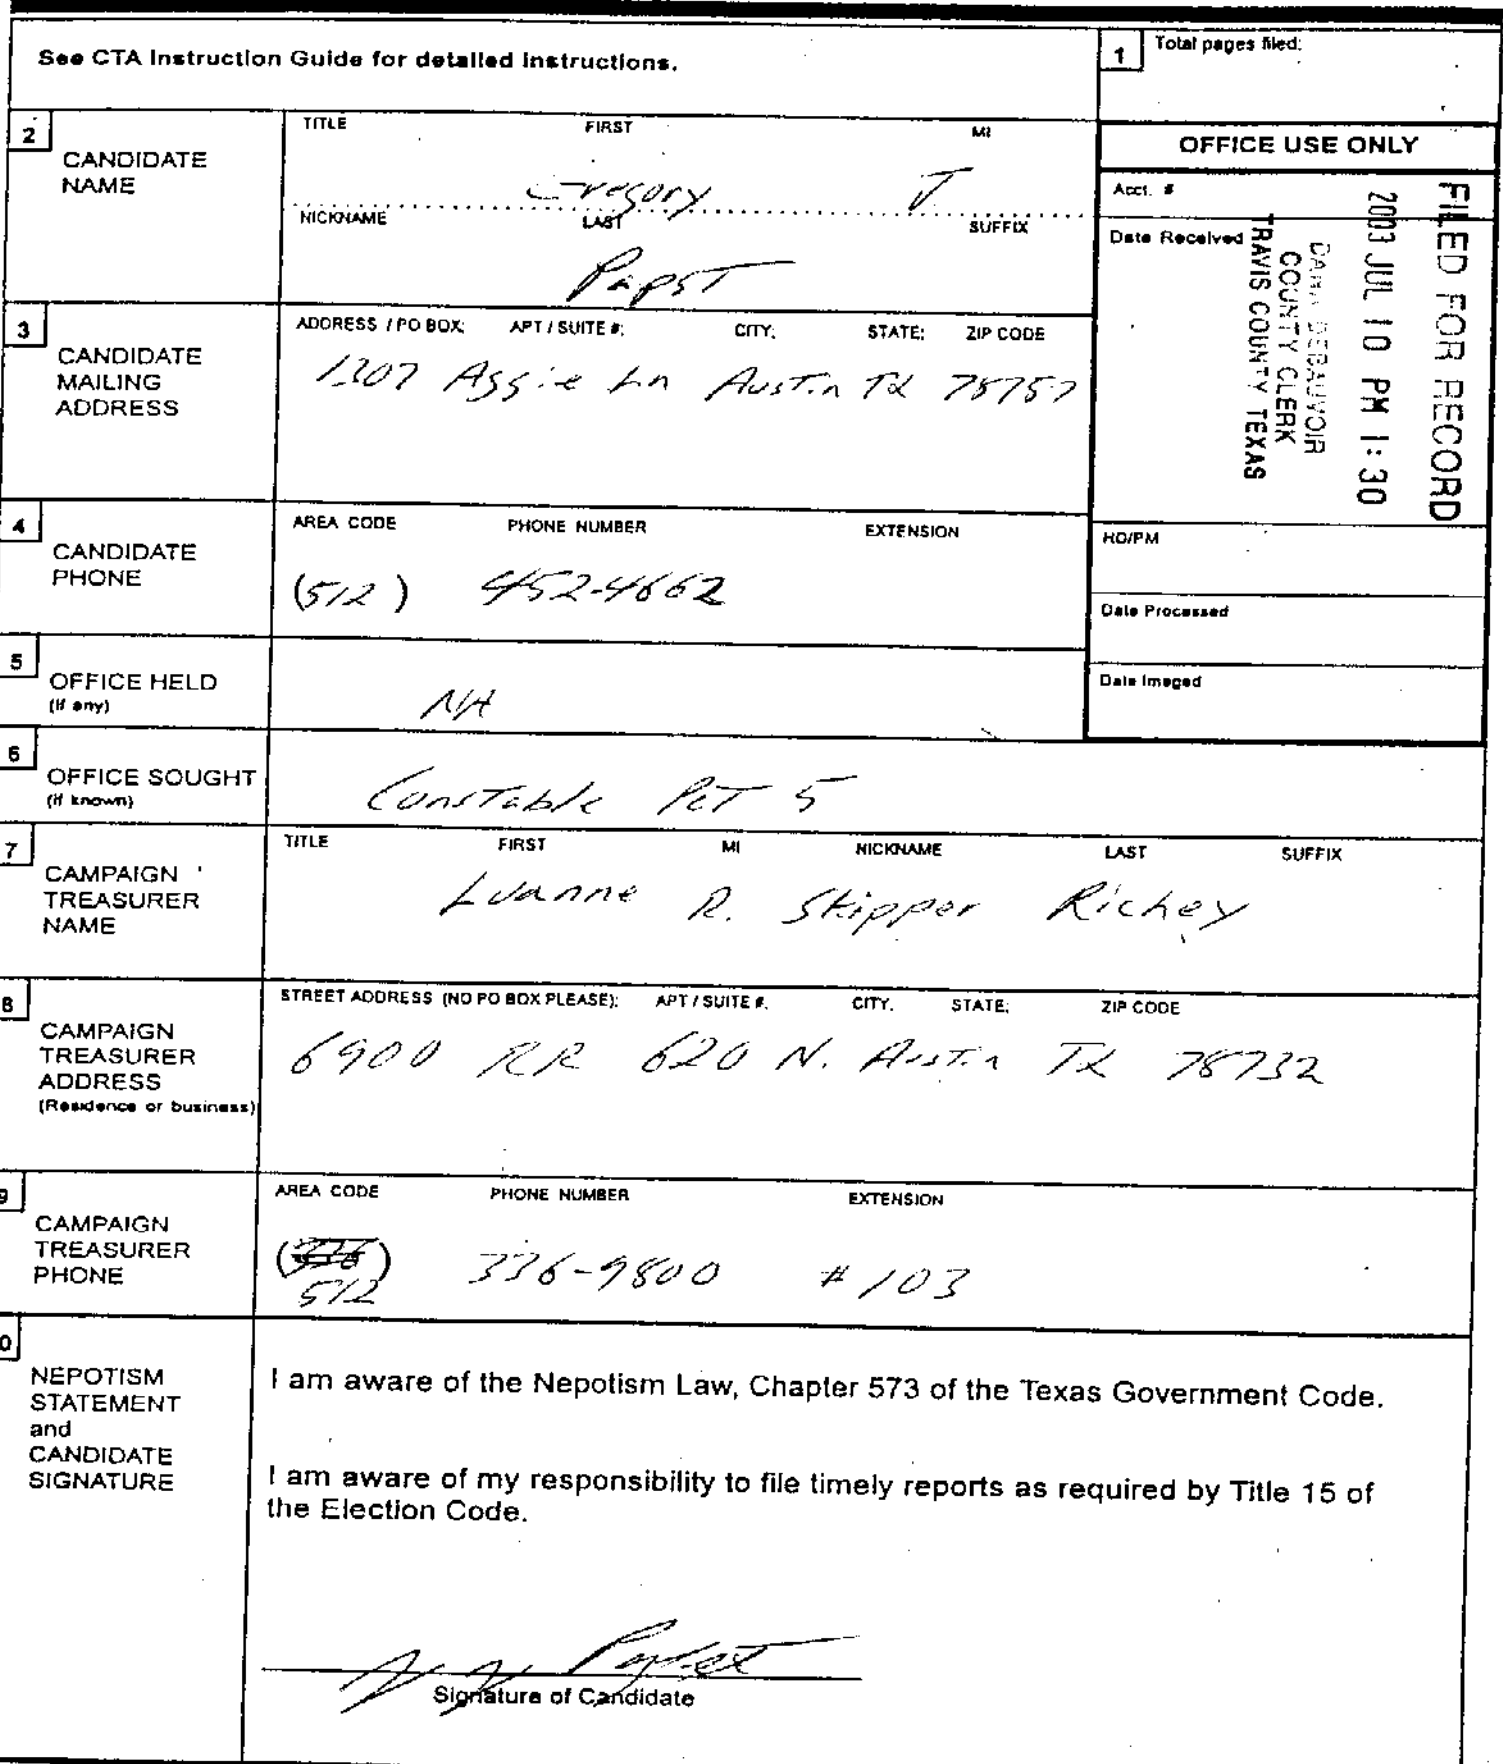 See CTA Instruction Guide for detailed instructions.
1 Total pages filed:
2 CANDIDATE NAME
TITLE FIRST MI
Gregory J
NICKNAME LAST SUFFIX
Papst
OFFICE USE ONLY
Acct. #
Date Received
FILED FOR RECORD
2003 JUL 10 PM 1:30
DANA DEBEAUVOIR
COUNTY CLERK
TRAVIS COUNTY TEXAS
3 CANDIDATE MAILING ADDRESS
ADDRESS / PO BOX; APT / SUITE #; CITY; STATE; ZIP CODE
1307 Aggie Ln Austin TX 78757
4 CANDIDATE PHONE
AREA CODE PHONE NUMBER EXTENSION
(512) 452-4662
HD/PM
Date Processed
Date Imaged
5 OFFICE HELD
(if any)
NA
6 OFFICE SOUGHT
(if known)
Constable PCT 5
7 CAMPAIGN TREASURER NAME
TITLE FIRST MI NICKNAME LAST SUFFIX
Luanne R. Skipper Richey
8 CAMPAIGN TREASURER ADDRESS
(Residence or business)
STREET ADDRESS (NO PO BOX PLEASE); APT / SUITE #; CITY; STATE; ZIP CODE
6900 RR 620 N. Austin TX 78732
9 CAMPAIGN TREASURER PHONE
AREA CODE PHONE NUMBER EXTENSION
(336) 336-9800 #103
512
0 NEPOTISM STATEMENT and CANDIDATE SIGNATURE
I am aware of the Nepotism Law, Chapter 573 of the Texas Government Code.
I am aware of my responsibility to file timely reports as required by Title 15 of
the Election Code.
Signature of Candidate